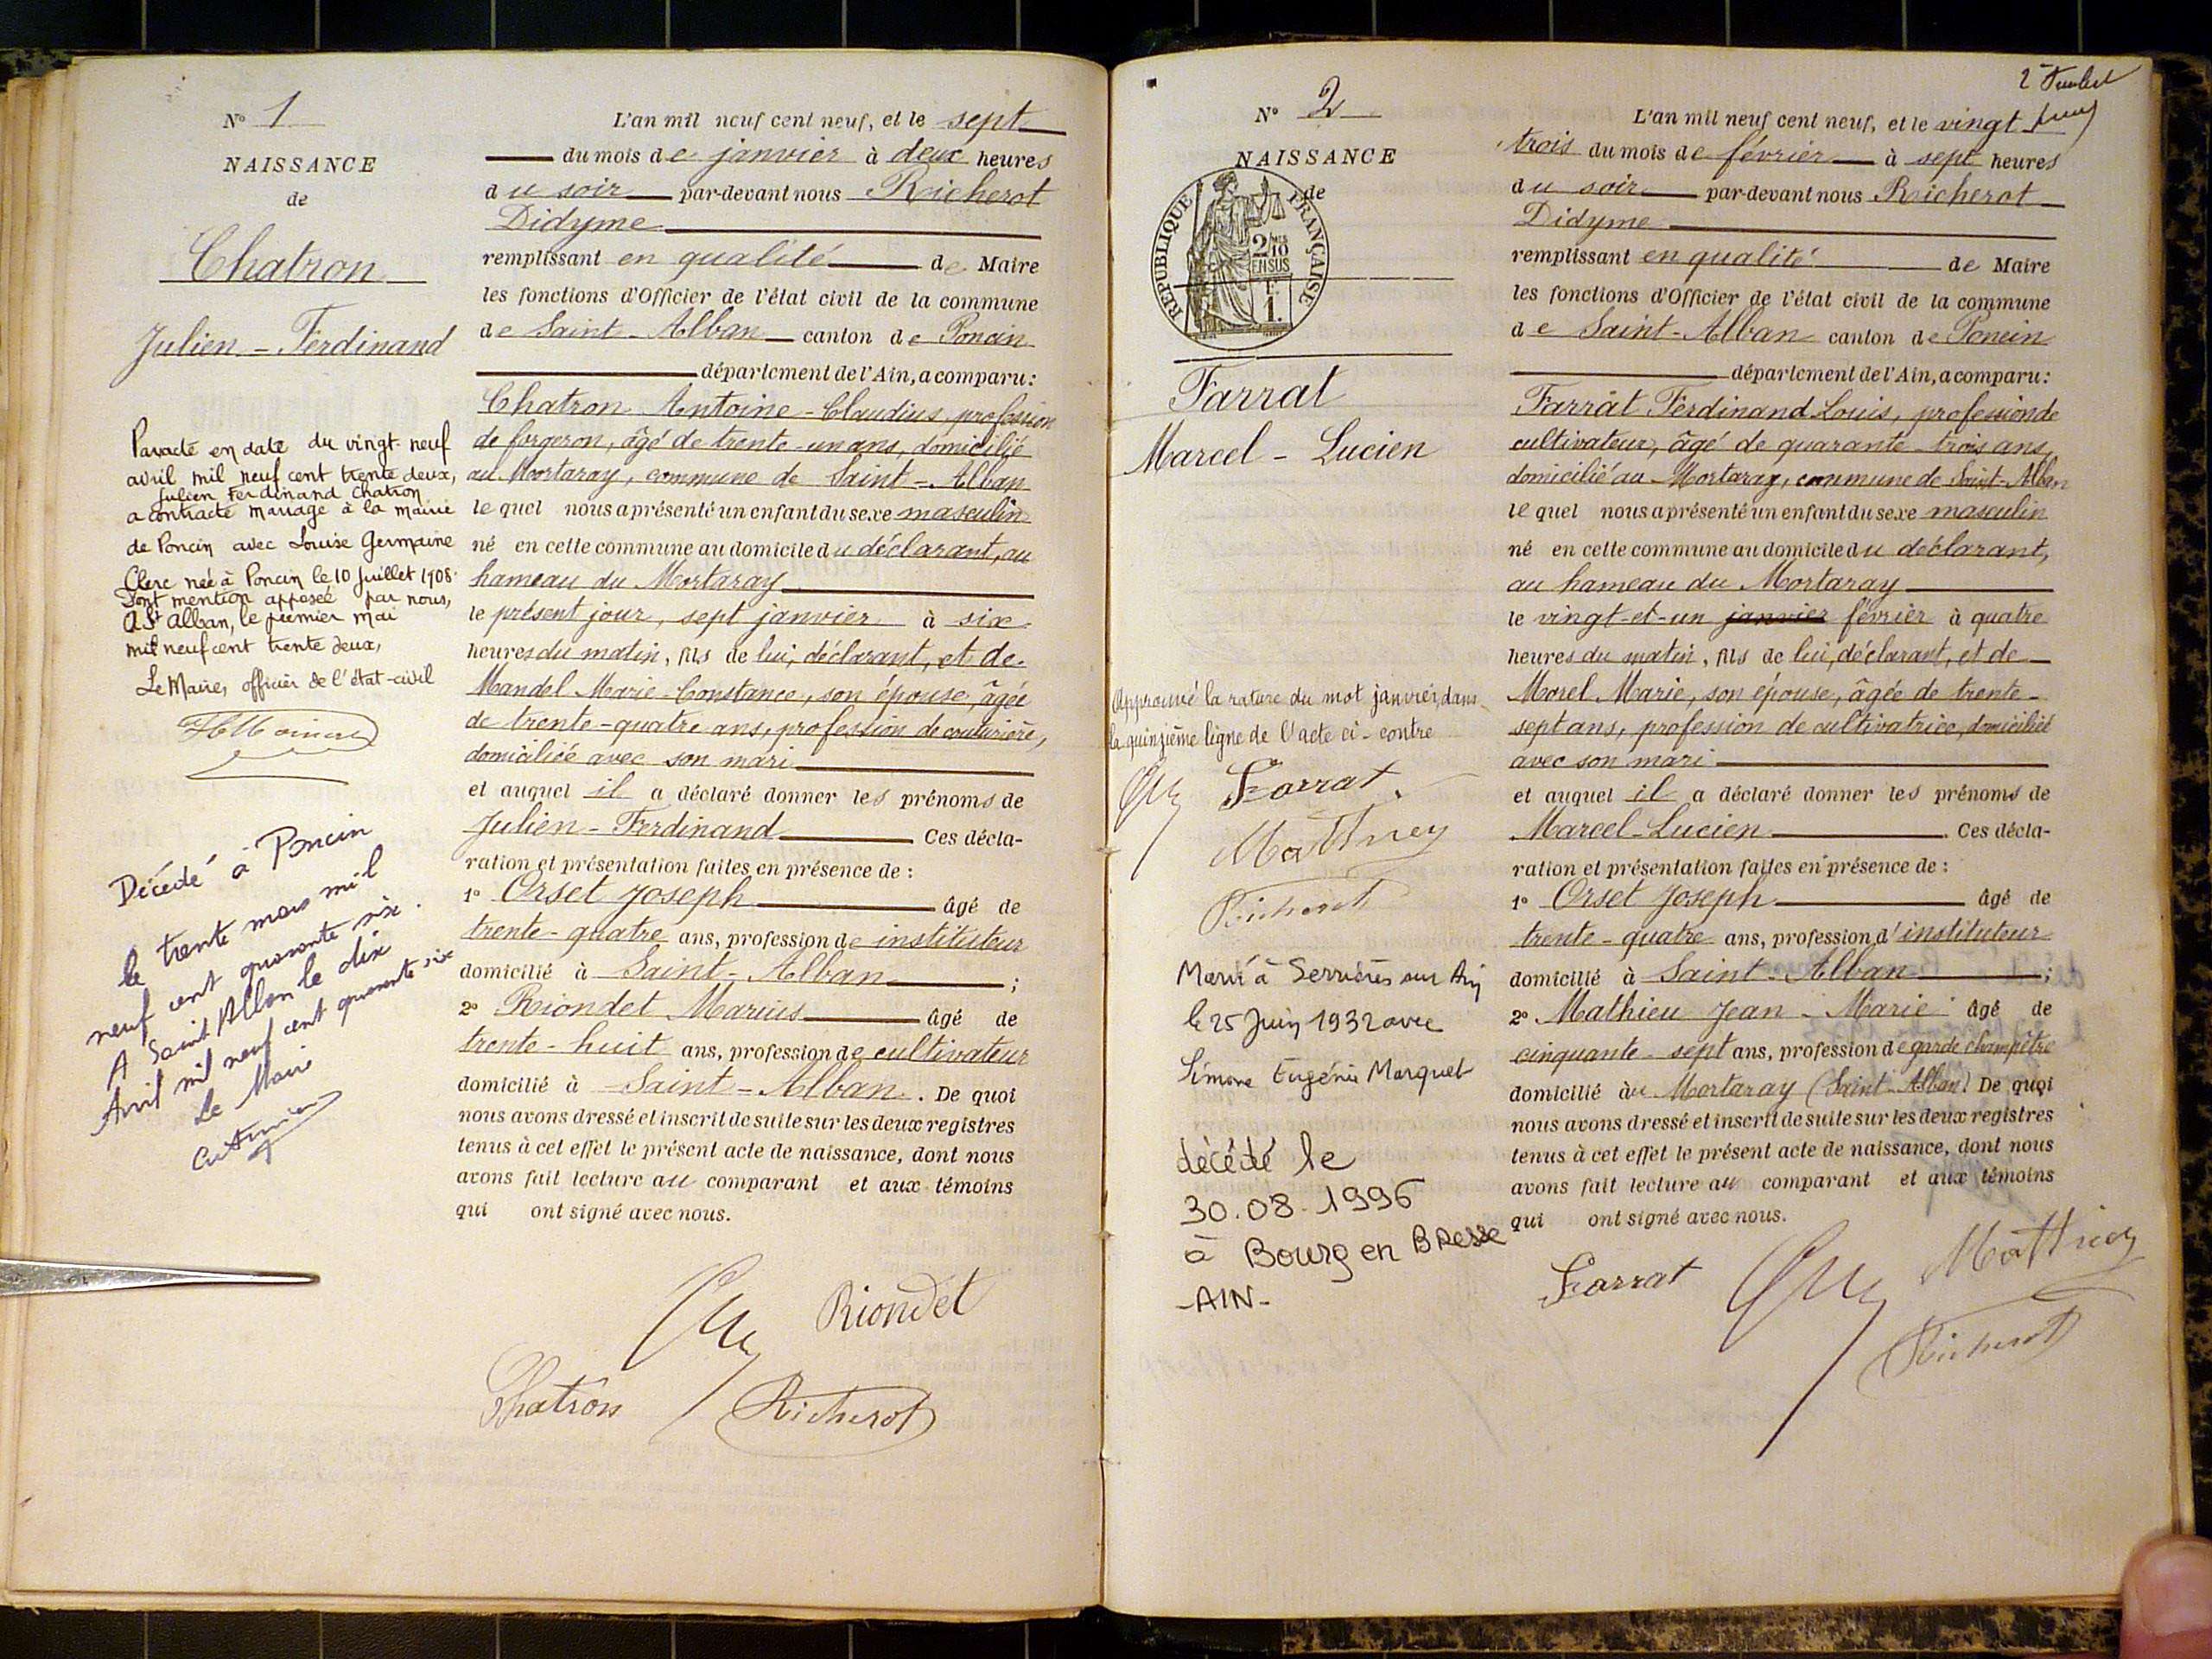 N° 1
NAISSANCE
de
Chatron
Julien - Ferdinand
Par acte en date du vingt-neuf
avril mil neuf cent trente deux,
Julien Ferdinand Chatron
a contracté mariage à la mairie
de Poncin avec Louise Germaine
Clerc née à Poncin le 10 Juillet 1908.
Dont mention apposée par nous,
à St Alban, le premier mai
mil neuf cent trente deux,
Le Maire, officier de l'état-civil
Décédé à Poncin
le trente mars mil
neuf cent quarante six.
A Saint Alban le dix
Avril mil neuf cent quarante six
Le Maire
L'an mil neuf cent neuf, et le sept
du mois de janvier à deux heures
du soir par-devant nous Richerot
Didyme
remplissant en qualité de Maire
les fonctions d'Officier de l'état civil de la commune
de Saint-Alban canton de Poncin
département de l'Ain, a comparu:
Chatron Antoine-Claudius, profession
de forgeron, âgé de trente-un ans, domicilié
au Mortaray, commune de Saint-Alban
lequel nous a présenté un enfant du sexe masculin
né en cette commune au domicile du déclarant, au
hameau du Mortaray
le présent jour, sept janvier à six
heures du matin, fils de lui, déclarant, et de
Mandel Marie-Constance, son épouse, âgée
de trente-quatre ans, profession de couturière,
domiciliée avec son mari
et auquel il a déclaré donner les prénoms de
Julien-Ferdinand Ces décla-
ration et présentation faites en présence de :
1° Orset Joseph âgé de
trente-quatre ans, profession de instituteur
domicilié à Saint-Alban ;
2° Riondet Marius âgé de
trente-huit ans, profession de cultivateur
domicilié à Saint-Alban. De quoi
nous avons dressé et inscrit de suite sur les deux registres
tenus à cet effet le présent acte de naissance, dont nous
avons fait lecture au comparant et aux témoins
qui ont signé avec nous.
Riondet
Chatron
Richerot
N° 2
NAISSANCE
de
RÉPUBLIQUE FRANÇAISE
2/10
EN SUS
F.
1.
Farrat
Marcel - Lucien
Approuvé la rature du mot janvier, dans
la quinzième ligne de l'acte ci-contre
Farrat.
Mathieu
Richerot
Marié à Serrières sur Ain
le 25 Juin 1932 avec
Simone Eugénie Marquet
décédé le
30.08.1996
à Bourg en Bresse
-AIN-
L'an mil neuf cent neuf, et le vingt
trois du mois de février à sept heures
du soir par-devant nous Richerot
Didyme
remplissant en qualité de Maire
les fonctions d'Officier de l'état civil de la commune
de Saint-Alban canton de Poncin
département de l'Ain, a comparu:
Farrat Ferdinand Louis, profession de
cultivateur, âgé de quarante-trois ans,
domicilié au Mortaray, commune de Saint-Alban
lequel nous a présenté un enfant du sexe masculin
né en cette commune au domicile du déclarant,
au hameau du Mortaray
le vingt-et-un janvier février à quatre
heures du matin, fils de lui, déclarant, et de
Morel Marie, son épouse, âgée de trente-
sept ans, profession de cultivatrice, domiciliée
avec son mari
et auquel il a déclaré donner les prénoms de
Marcel-Lucien. Ces décla-
ration et présentation faites en présence de :
1° Orset Joseph âgé de
trente-quatre ans, profession d'instituteur
domicilié à Saint-Alban ;
2° Mathieu Jean-Marie âgé de
cinquante-sept ans, profession de garde champêtre
domicilié au Mortaray (Saint-Alban). De quoi
nous avons dressé et inscrit de suite sur les deux registres
tenus à cet effet le présent acte de naissance, dont nous
avons fait lecture au comparant et aux témoins
qui ont signé avec nous.
Farrat
Mathieu
Richerot